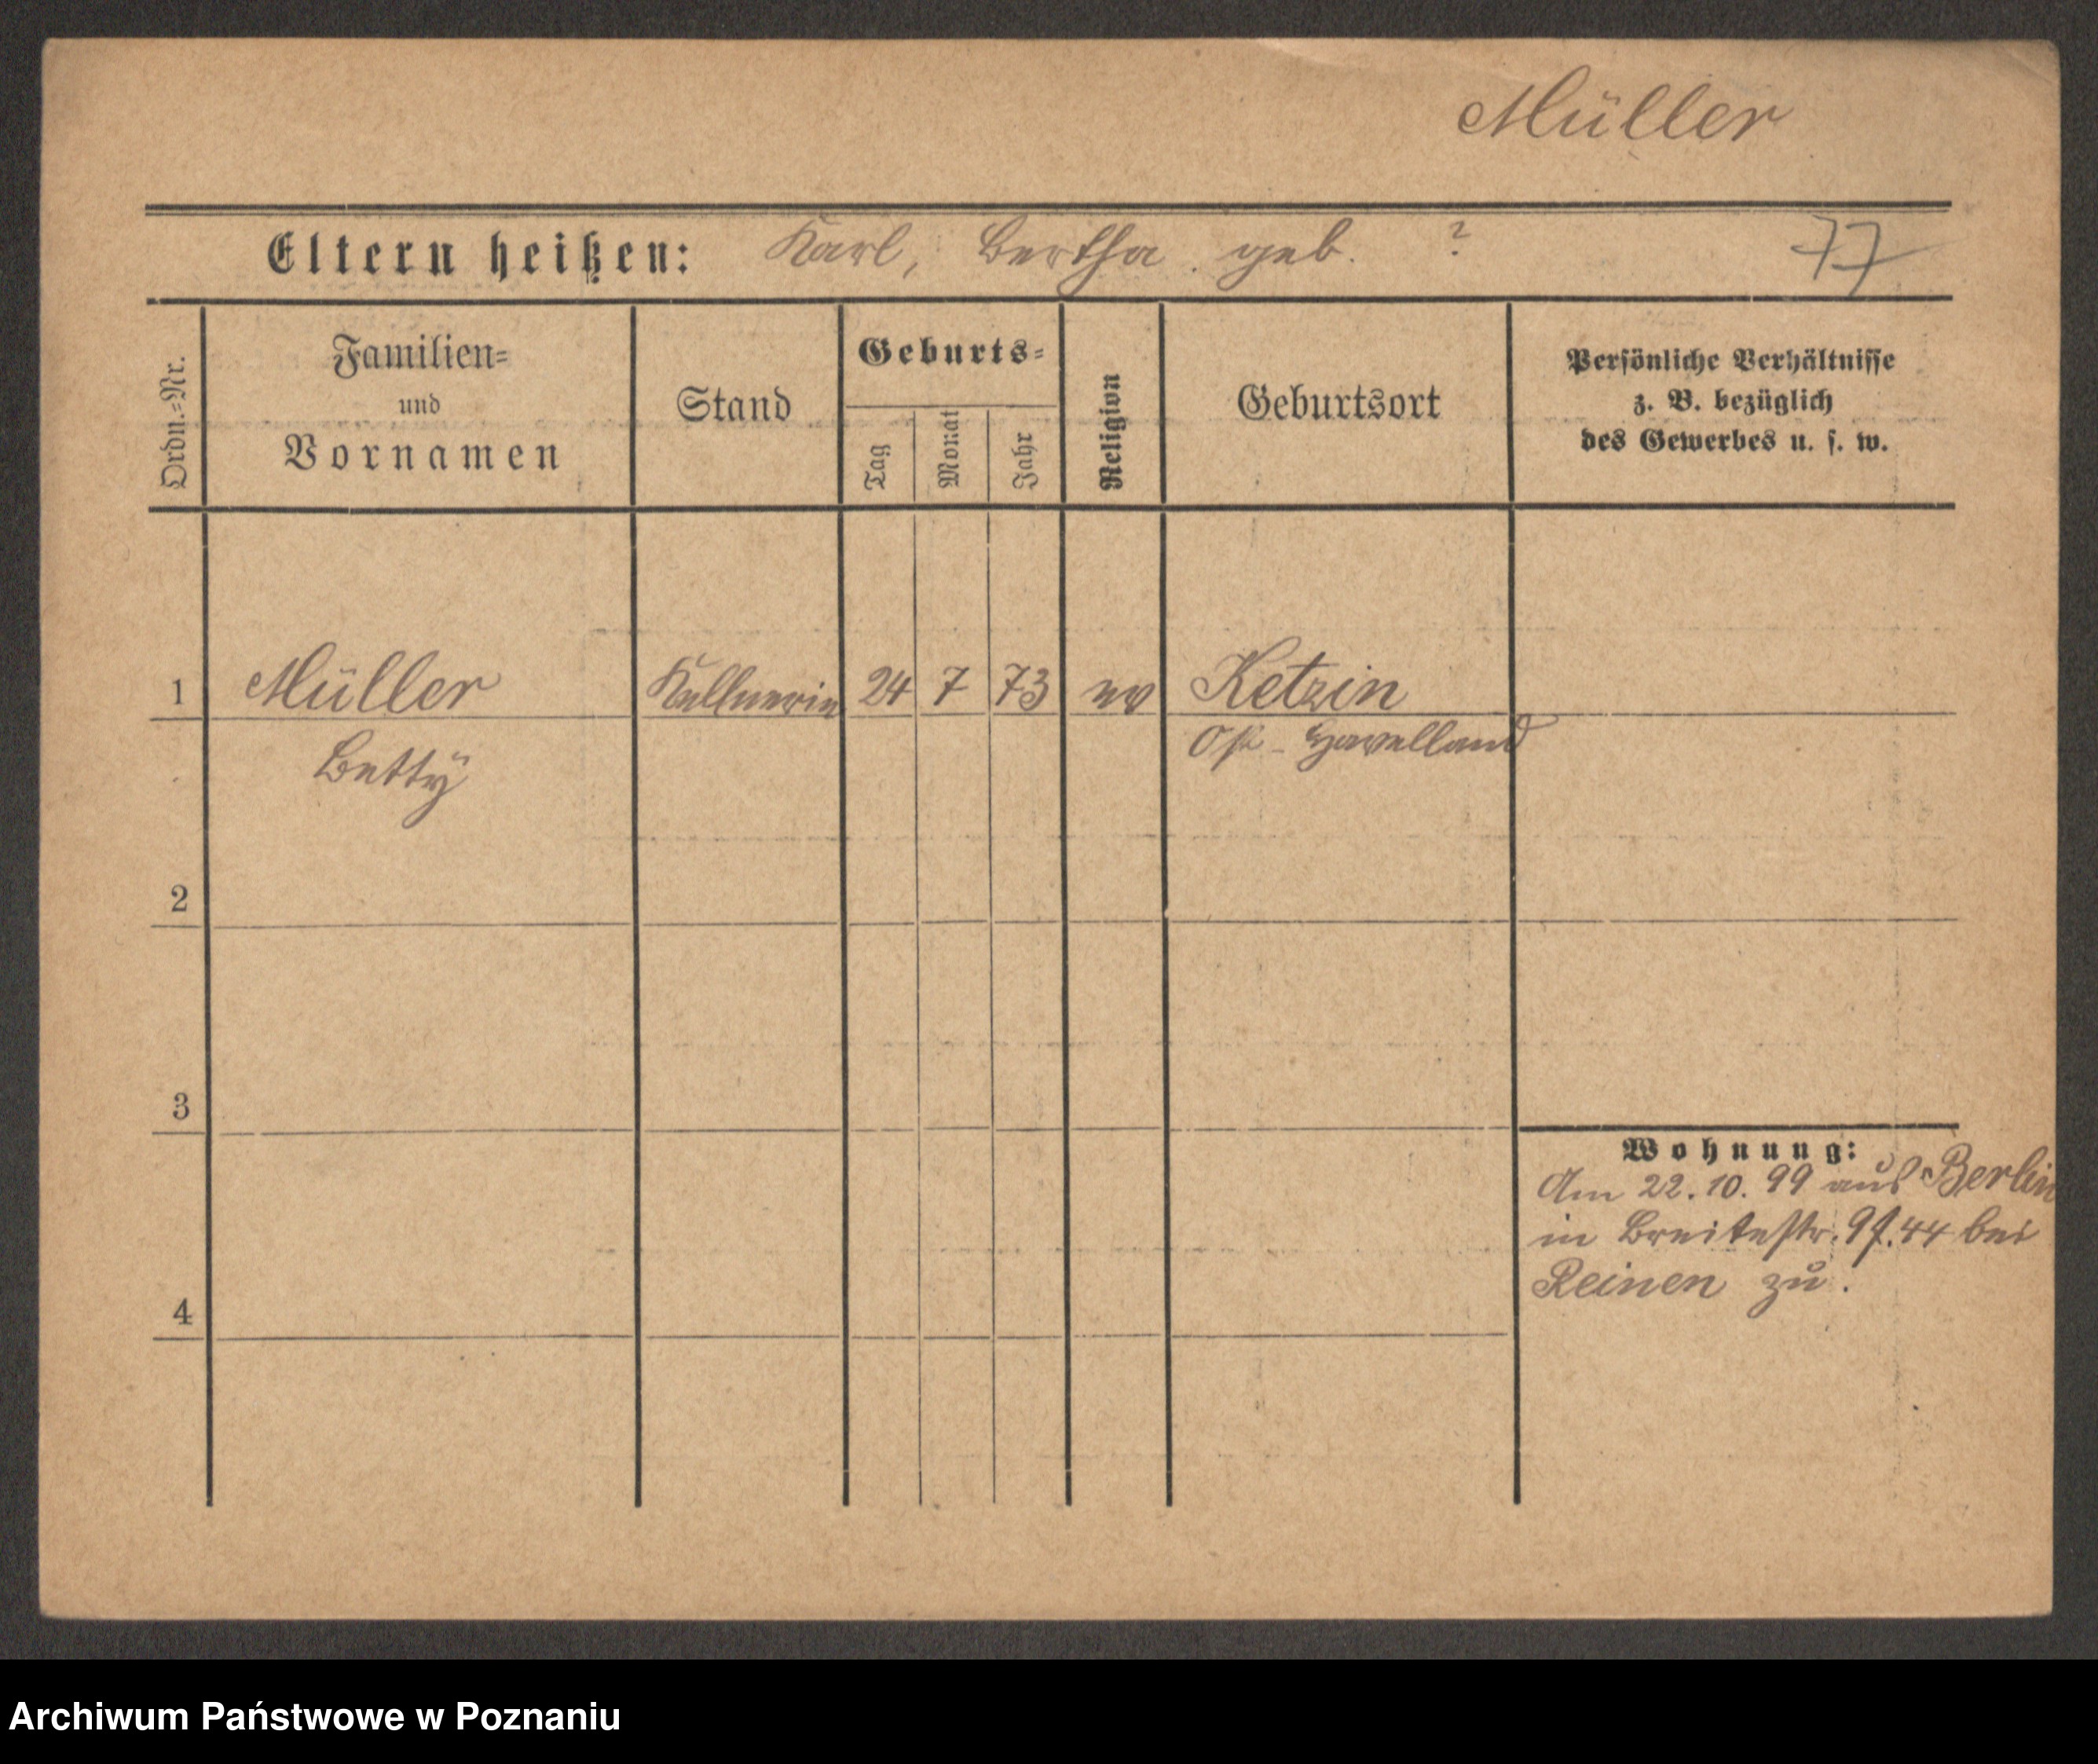 Müller
Eltern heißen: Karl, Bertha geb. ? 77
Ordn.=Nr.
Familien=
und
Vornamen
Stand
Geburts=
Tag
Monat
Jahr
Religion
Geburtsort
Persönliche Verhältnisse
z. B. bezüglich
des Gewerbes u. s. w.
1 Müller Kellnerin 24 7 73 ev Ketzin
Betty
Ost-Havelland
2
3
4
Wohnung:
Am 22.10.99 aus Berlin
in Breitestr. 44 bei
Reinen zu.
Archiwum Państwowe w Poznaniu